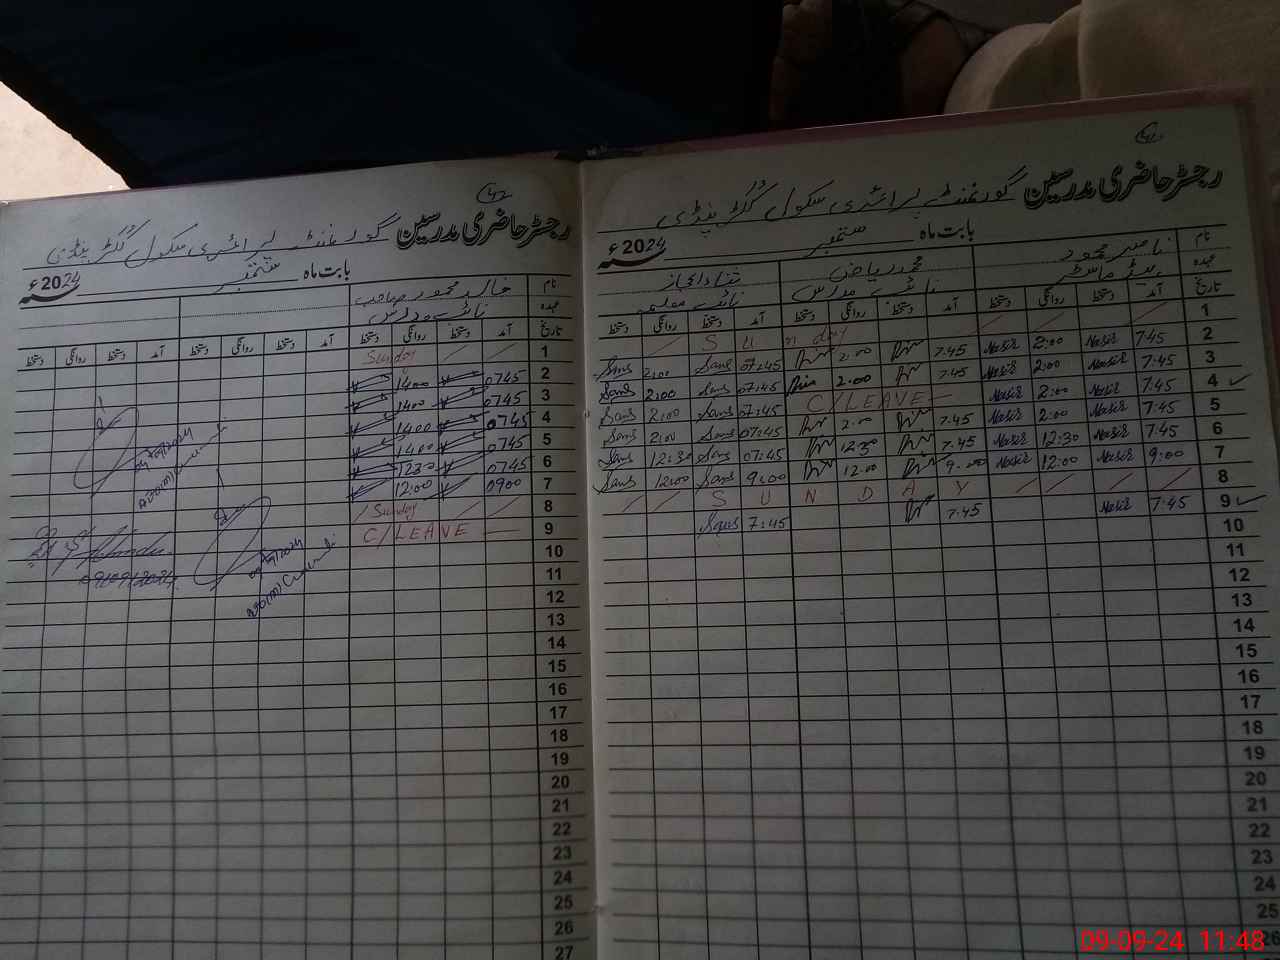 رجسٹر حاضری مدرسین گورنمنٹ پرائمری سکول
42
بابت ماہ ستمبر 2024ء
نام خالد محمود صاحب
عہدہ نائب مدرس
تاریخ آمد دستخط روانگی دستخط آمد دستخط روانگی دستخط
1 Sunday
2 0745 1400
3 0745 1400
4 0745 1400
5 0745 1400
6 0745 1230
7 0900 12:00
8 Sunday
9 C/LEAVE
10
11
12
13
14
15
16
17
18
19
20
21
22
23
24
25
26
27
04/09/2024
09/09/2024
09/09/2024
رجسٹر حاضری مدرسین گورنمنٹ پرائمری سکول
41
بابت ماہ ستمبر 2024ء
نام ناصر محمود محمد ریاض
عہدہ ہیڈ ماسٹر نائب مدرس نائب معلمہ
تاریخ آمد دستخط روانگی دستخط آمد دستخط روانگی دستخط آمد دستخط روانگی دستخط
1 Sunday
2 7:45 Nasir 2:00 Nasir 7.45 2.00 07:45 Sans 2:00 Sans
3 7:45 Nasir 2:00 Nasir 7.45 2.00 07:45 Sans 2:00 Sans
4 7:45 Nasir 2:00 Nasir C/LEAVE 07:45 Sans 2:00 Sans
5 7:45 Nasir 2:00 Nasir 7.45 2.00 07:45 Sans 2:00 Sans
6 7:45 Nasir 12:30 Nasir 7.45 12.30 07:45 Sans 12:30 Sans
7 9:00 Nasir 12:00 Nasir 9.00 12.00 9:00 Sans 12:00 Sans
8 SUNDAY
9 7:45 Nasir 7.45 7:45 Sans
10
11
12
13
14
15
16
17
18
19
20
21
22
23
24
25
26
09-09-24 11:48